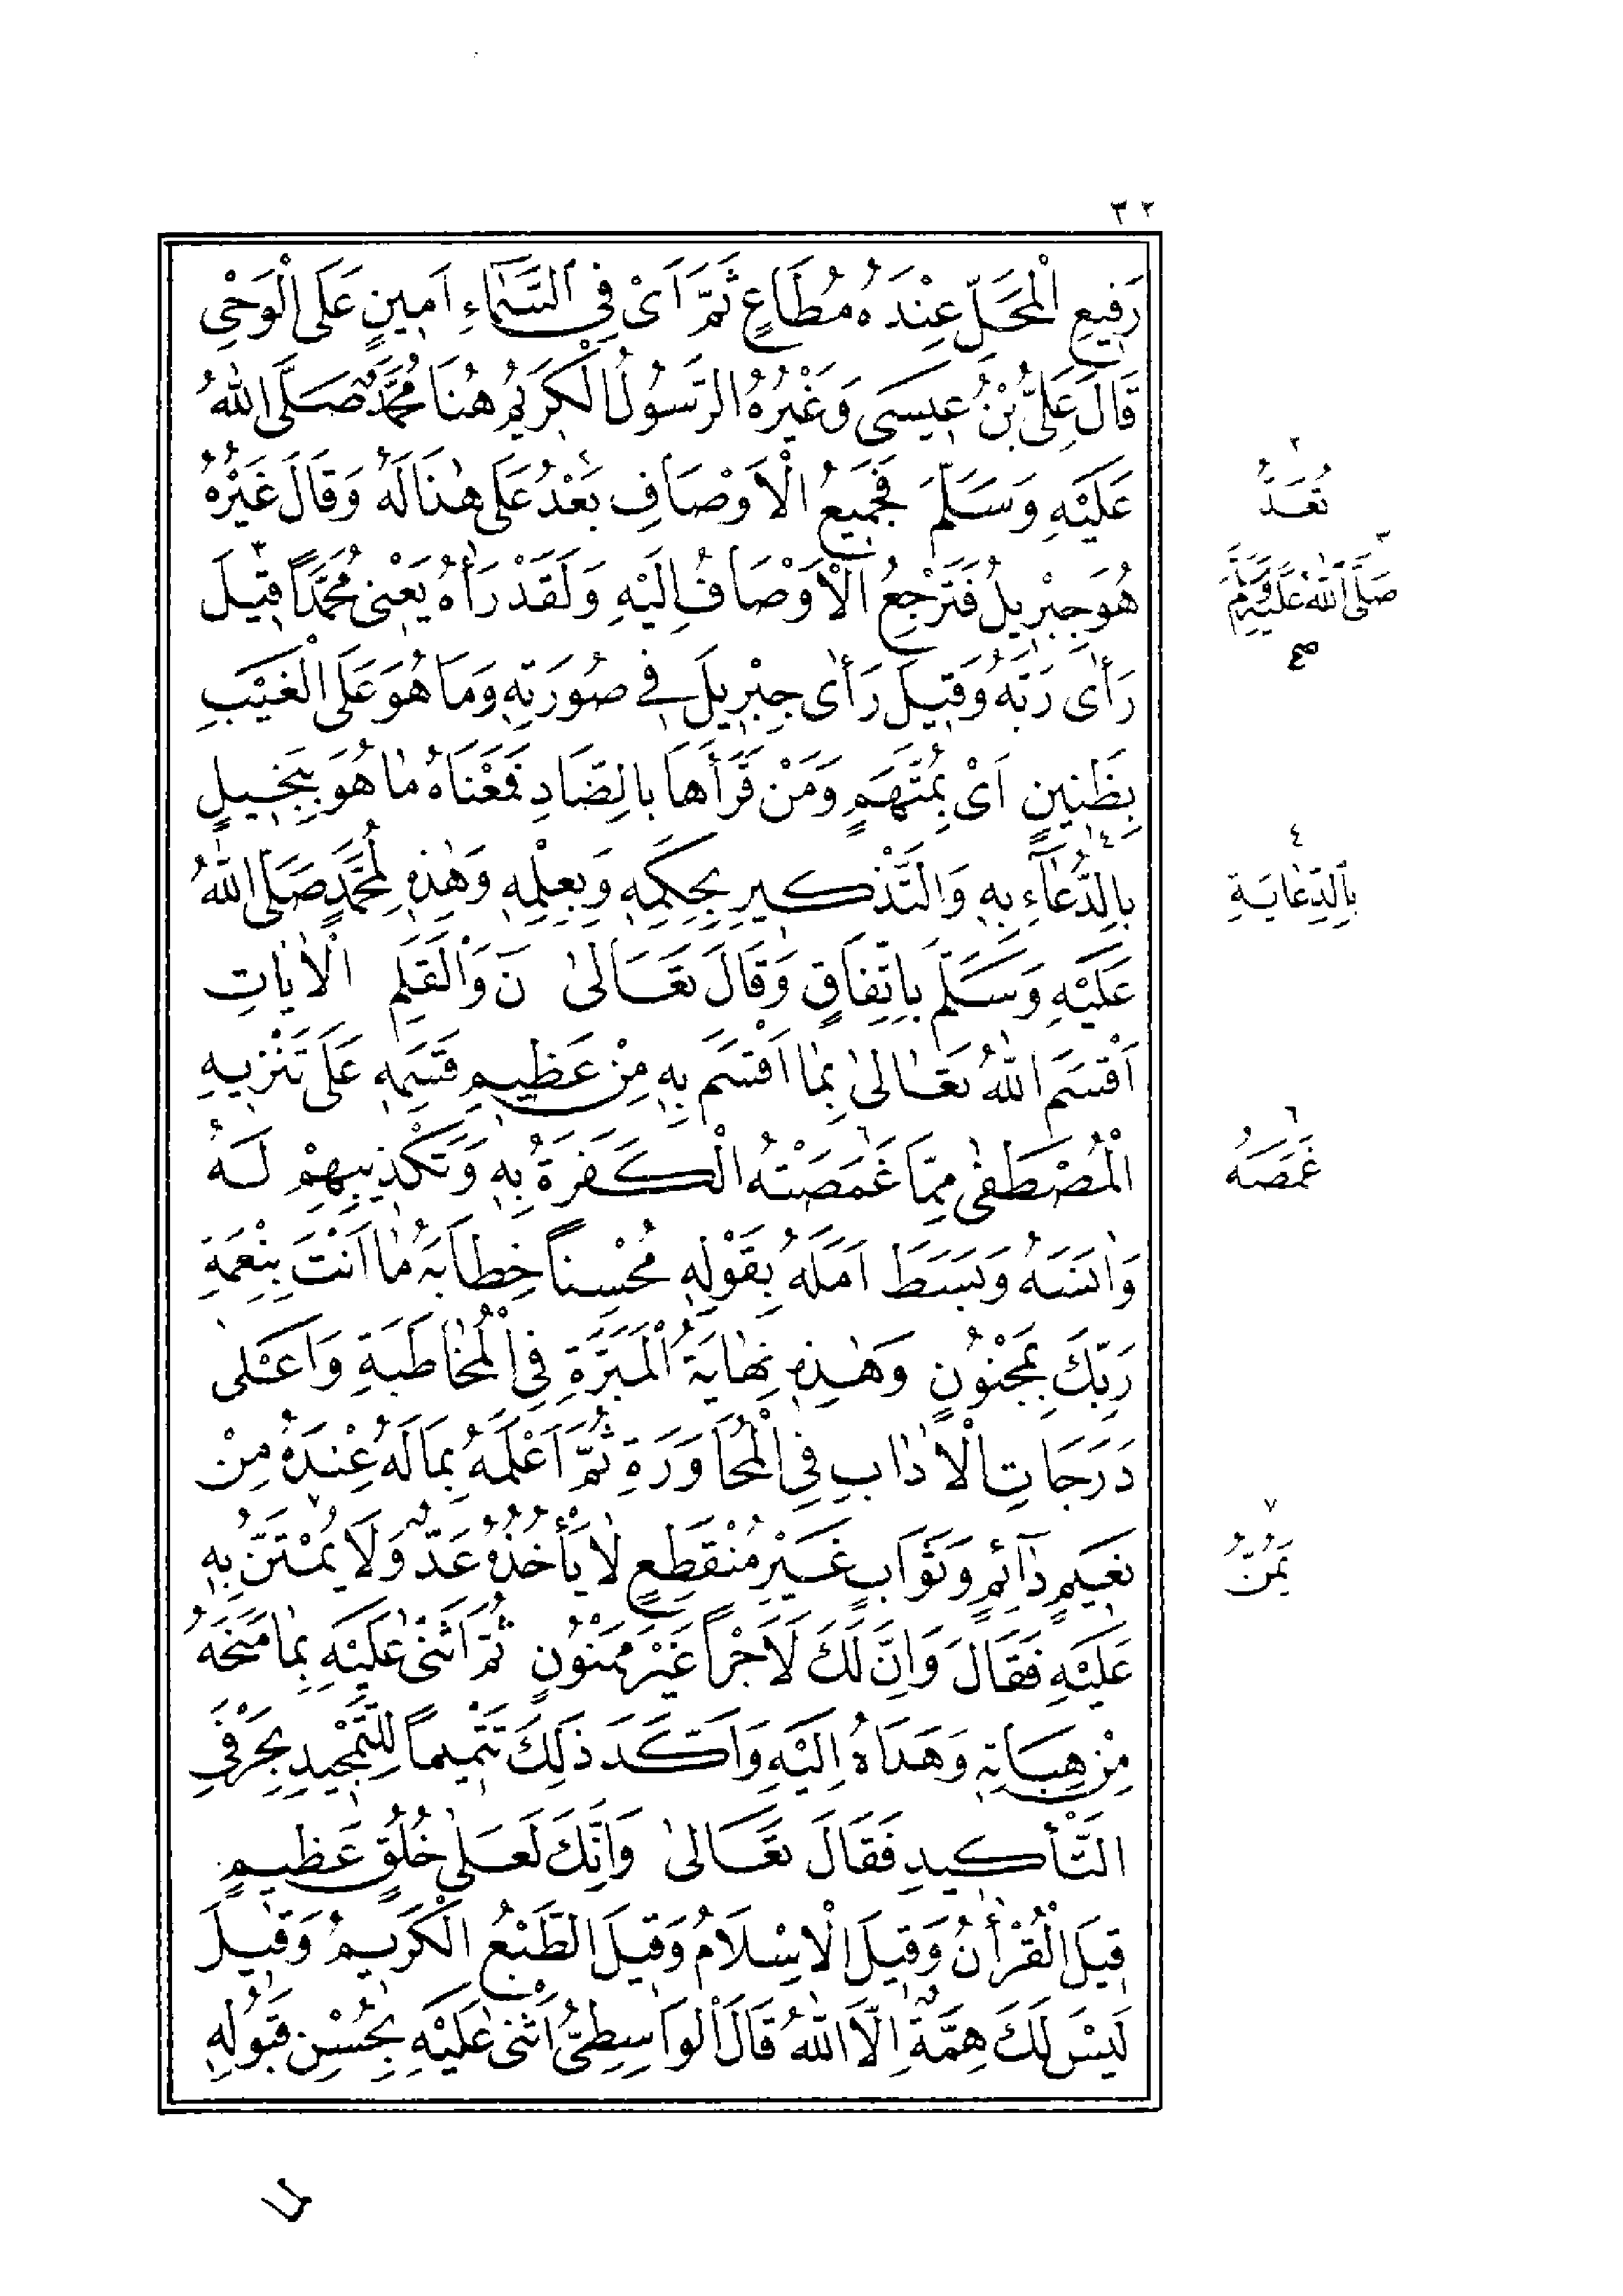 ٣٢
رَفِيعِ الْمَحَلِّ عِنْدَهُ مُطَاعٍ ثَمَّ اَىْ فِى السَّمَاءِ اَمِينٍ عَلَى الْوَحْىِ
قَالَ عَلِىُّ بْنُ عِيسَى وَغَيْرُهُ الرَّسُولُ الْكَرِيمُ هُنَا مُحَمَّدٌ صَلَّى اللهُ
عَلَيْهِ وَسَلَّمَ فَجَمِيعُ الْاَوْصَافِ بَعْدُ عَلَى هٰذَا لَهُ وَقَالَ غَيْرُهُ
هُوَ جِبْرِيلُ فَتَرْجِعُ الْاَوْصَافُ اِلَيْهِ وَلَقَدْ رَاٰهُ يَعْنِى مُحَمَّدًا ٣ قِيلَ
رَأٰى رَبَّهُ وَقِيلَ رَأٰى جِبْرِيلَ فِى صُورَتِهِ وَمَا هُوَ عَلَى الْغَيْبِ
بِظَنِينٍ اَىْ بِمُتَّهَمٍ وَمَنْ قَرَأَهَا بِالضَّادِ فَمَعْنَاهُ مَا هُوَ بِبَخِيلٍ
بِالدُّعَآءِ ٤ بِهِ وَالتَّذْكِيرِ بِحِكَمِهِ وَبِعِلْمِهِ وَهٰذِهِ لِمُحَمَّدٍ صَلَّى اللهُ
عَلَيْهِ وَسَلَّمَ بِاتِّفَاقٍ وَقَالَ تَعَالىٰ نَ وَالْقَلَمِ الْاٰيَاتِ
اَقْسَمَ اللهُ تَعَالىٰ بِمَا اَقْسَمَ بِهِ مِنْ عَظِيمِ قَسَمِهِ عَلَى تَنْزِيهِ
الْمُصْطَفٰى مِمَّا غَمَصَتْهُ ٦ الْكَفَرَةُ بِهِ وَتَكْذِيبِهِمْ لَهُ
وَاٰنَسَهُ وَبَسَطَ اَمَلَهُ بِقَوْلِهِ مُحْسِنًا خِطَابَهُ مَا اَنْتَ بِنِعْمَةِ
رَبِّكَ بِمَجْنُونٍ وَهٰذِهِ نِهَايَةُ الْمَبَرَّةِ فِى الْمُخَاطَبَةِ وَاَعْلٰى
دَرَجَاتِ الْاٰدَابِ فِى الْمُحَاوَرَةِ ثُمَّ اَعْلَمَهُ بِمَا لَهُ عِنْدَهُ مِنْ
نَعِيمٍ دَآئِمٍ وَثَوَابٍ غَيْرِ مُنْقَطِعٍ لَا يَأْخُذُهُ عَدٌّ وَلَا يُمْتَنُّ ٧ بِهِ
عَلَيْهِ فَقَالَ وَاِنَّ لَكَ لَاَجْرًا غَيْرَ مَمْنُونٍ ثُمَّ اَثْنٰى عَلَيْهِ بِمَا مَنَحَهُ
مِنْ هِبَاتِهِ وَهَدَاهُ اِلَيْهِ وَاَكَّدَ ذٰلِكَ تَتْمِيمًا لِلتَّمْجِيدِ بِحَرْفَىِ
التَّأْكِيدِ فَقَالَ تَعَالىٰ وَاِنَّكَ لَعَلٰى خُلُقٍ عَظِيمٍ
قِيلَ الْقُرْاٰنُ وَقِيلَ الْاِسْلَامُ وَقِيلَ الطَّبْعُ الْكَرِيمُ وَقِيلَ
لَيْسَ لَكَ هِمَّةٌ اِلَّا اللهُ قَالَ الْوَاسِطِىُّ اَثْنٰى عَلَيْهِ بِحُسْنِ قَبُولِهِ
٢
تُعَدُّ
٣
صَلَّى اللهُ عَلَيْهِ وَسَلَّمَ
صح
٤
بِالدِّعَايَةِ
٦
غَمَصَهُ
٧
يُمَنُّ
لما